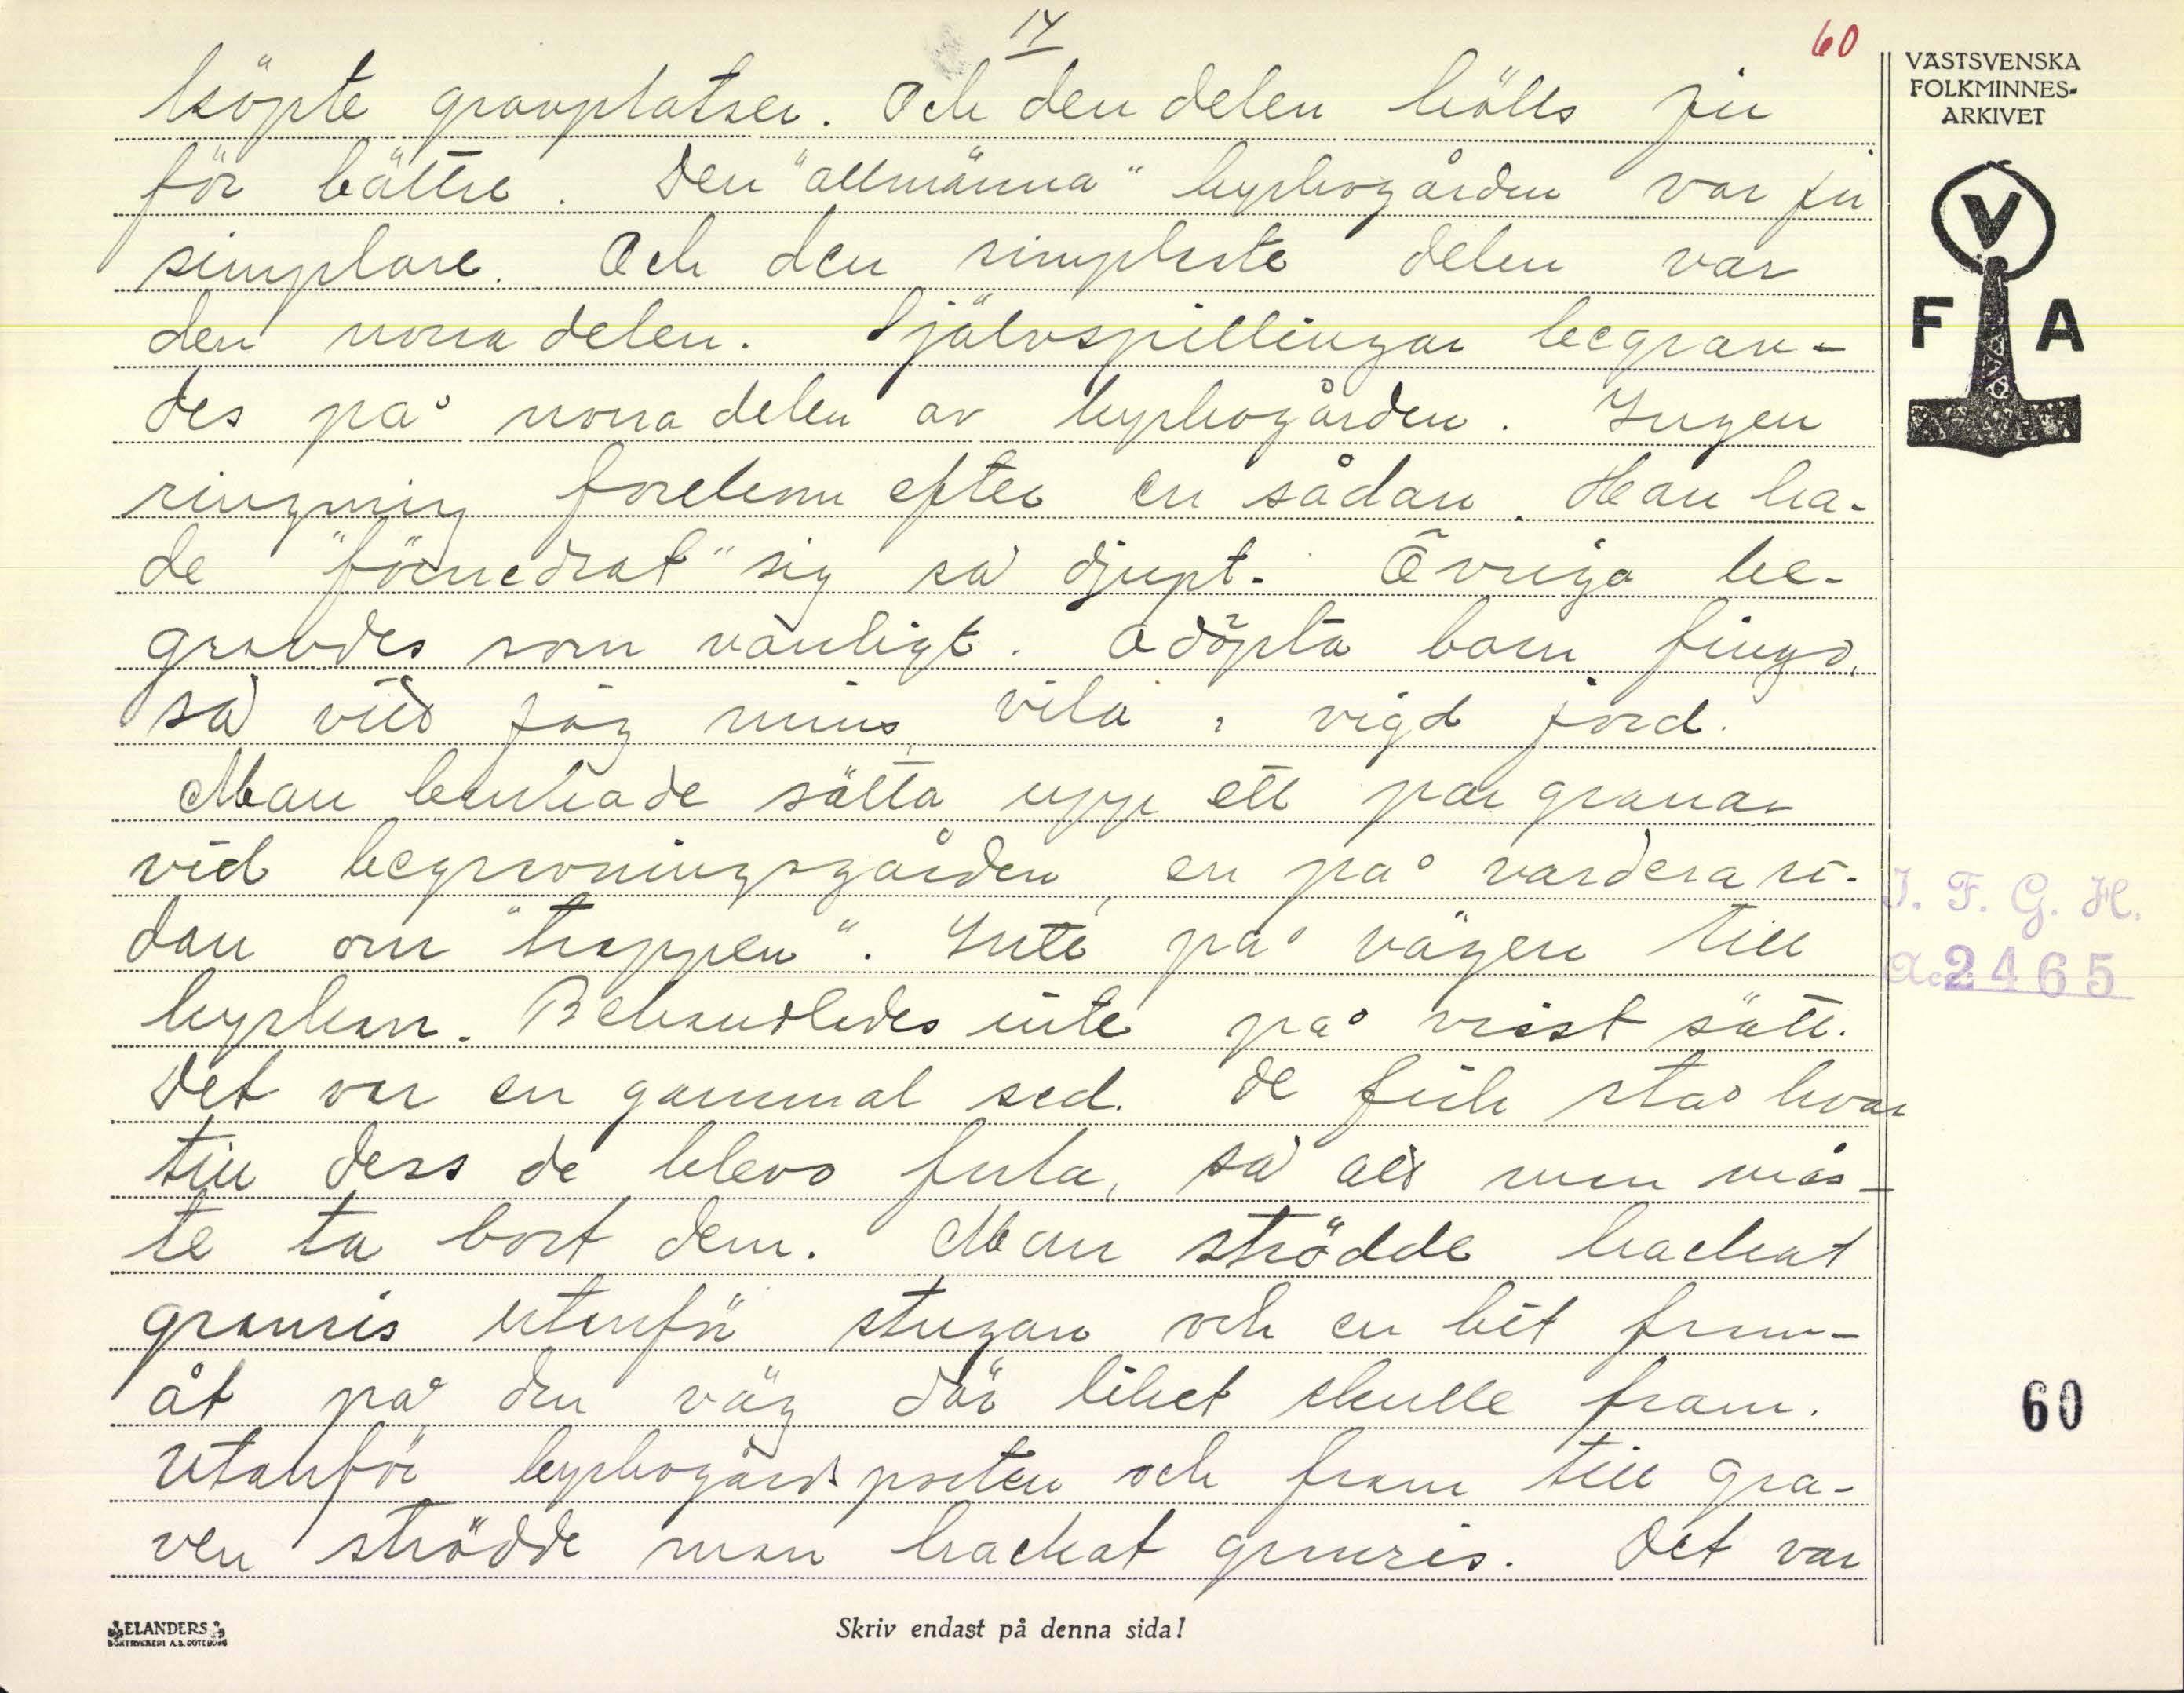 14
60
köpte gravplatser. Och den delen hölls ju
för bättre. Den "allmänna" kyrkogården var ju
simplare. Och den simplaste delen var
den norra delen. Självspillingar begrav-
des på norra delen av kyrkogården. Ingen
ringning förekom efter en sådan. Han ha-
de "förnedrat" sig så djupt. Övriga be-
gravdes som vanligt. Odöpta barn fingo,
så vitt jag minns, vila i vigd jord.
Man brukade sätta upp ett par granar
vid begravningsgården, en på vardera si-
dan om "trappen". Inte på vägen till
kyrkan. Behandlades inte på visst sätt.
Det var en gammal sed. De fick stå kvar
till dess de blevo fula, så att man mås-
te ta bort dem. Man strödde hackat
granris utanför stugan och en bit fram-
åt på den väg där liket skulle fram.
Utanför kyrkogårdsporten och fram till gra-
ven strödde man hackat granris. Det var
VÄSTSVENSKA
FOLKMINNES-
ARKIVET
V
F A
I. F. G. H.
Acc. 2465
60
ELANDERS
BOKTRYCKERI A.B. GÖTEBORG
Skriv endast på denna sida!